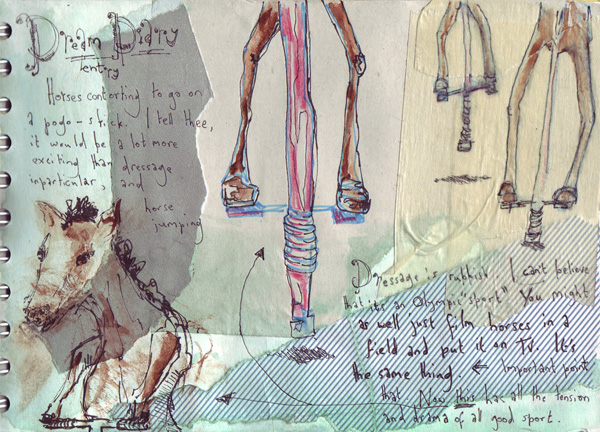 Dream Diary
entry
Horses contorting to go on
a pogo-stick. I tell thee,
it would be a lot more
exciting than dressage
inparticular, and
horse
jumping
Dressage is rubbish. I can't believe
that it's an Olympic "sport" You might
as well just film horses in a
field and put it on TV. It's
the same thing. ← Important point
that. Now this has all the tension
and drama of all good sport.